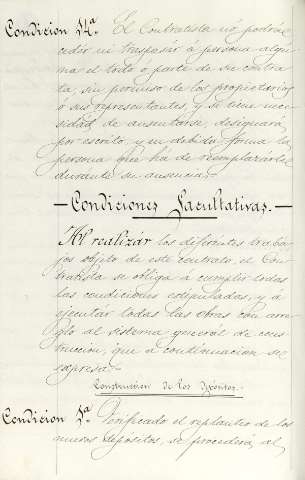 Condicion 14ª El Contratista nó podrá
ceder ni traspasar á persona algu-
na el todo ó parte de su contra-
ta, sin permiso de los propietarios
ó sus representantes, y si tiene nece-
sidad de ausentarse, designará
por escrito y en debida forma la
persona que ha de reemplazarle
durante su ausencia.
— Condiciones Facultativas. —
Al realizár los diferentes traba-
jos objeto de este contrato, el Con-
tratista se obliga á cumplir todas
las condiciones estipuladas, y á
ejecutár todas las obras con arre-
glo al sistema generál de cons-
truccion, que á continuacion se
espresa.
Construcción de los Depósitos.
Condicion 1ª Verificado el replanteo de los
nuevos depósitos, se procederá, al